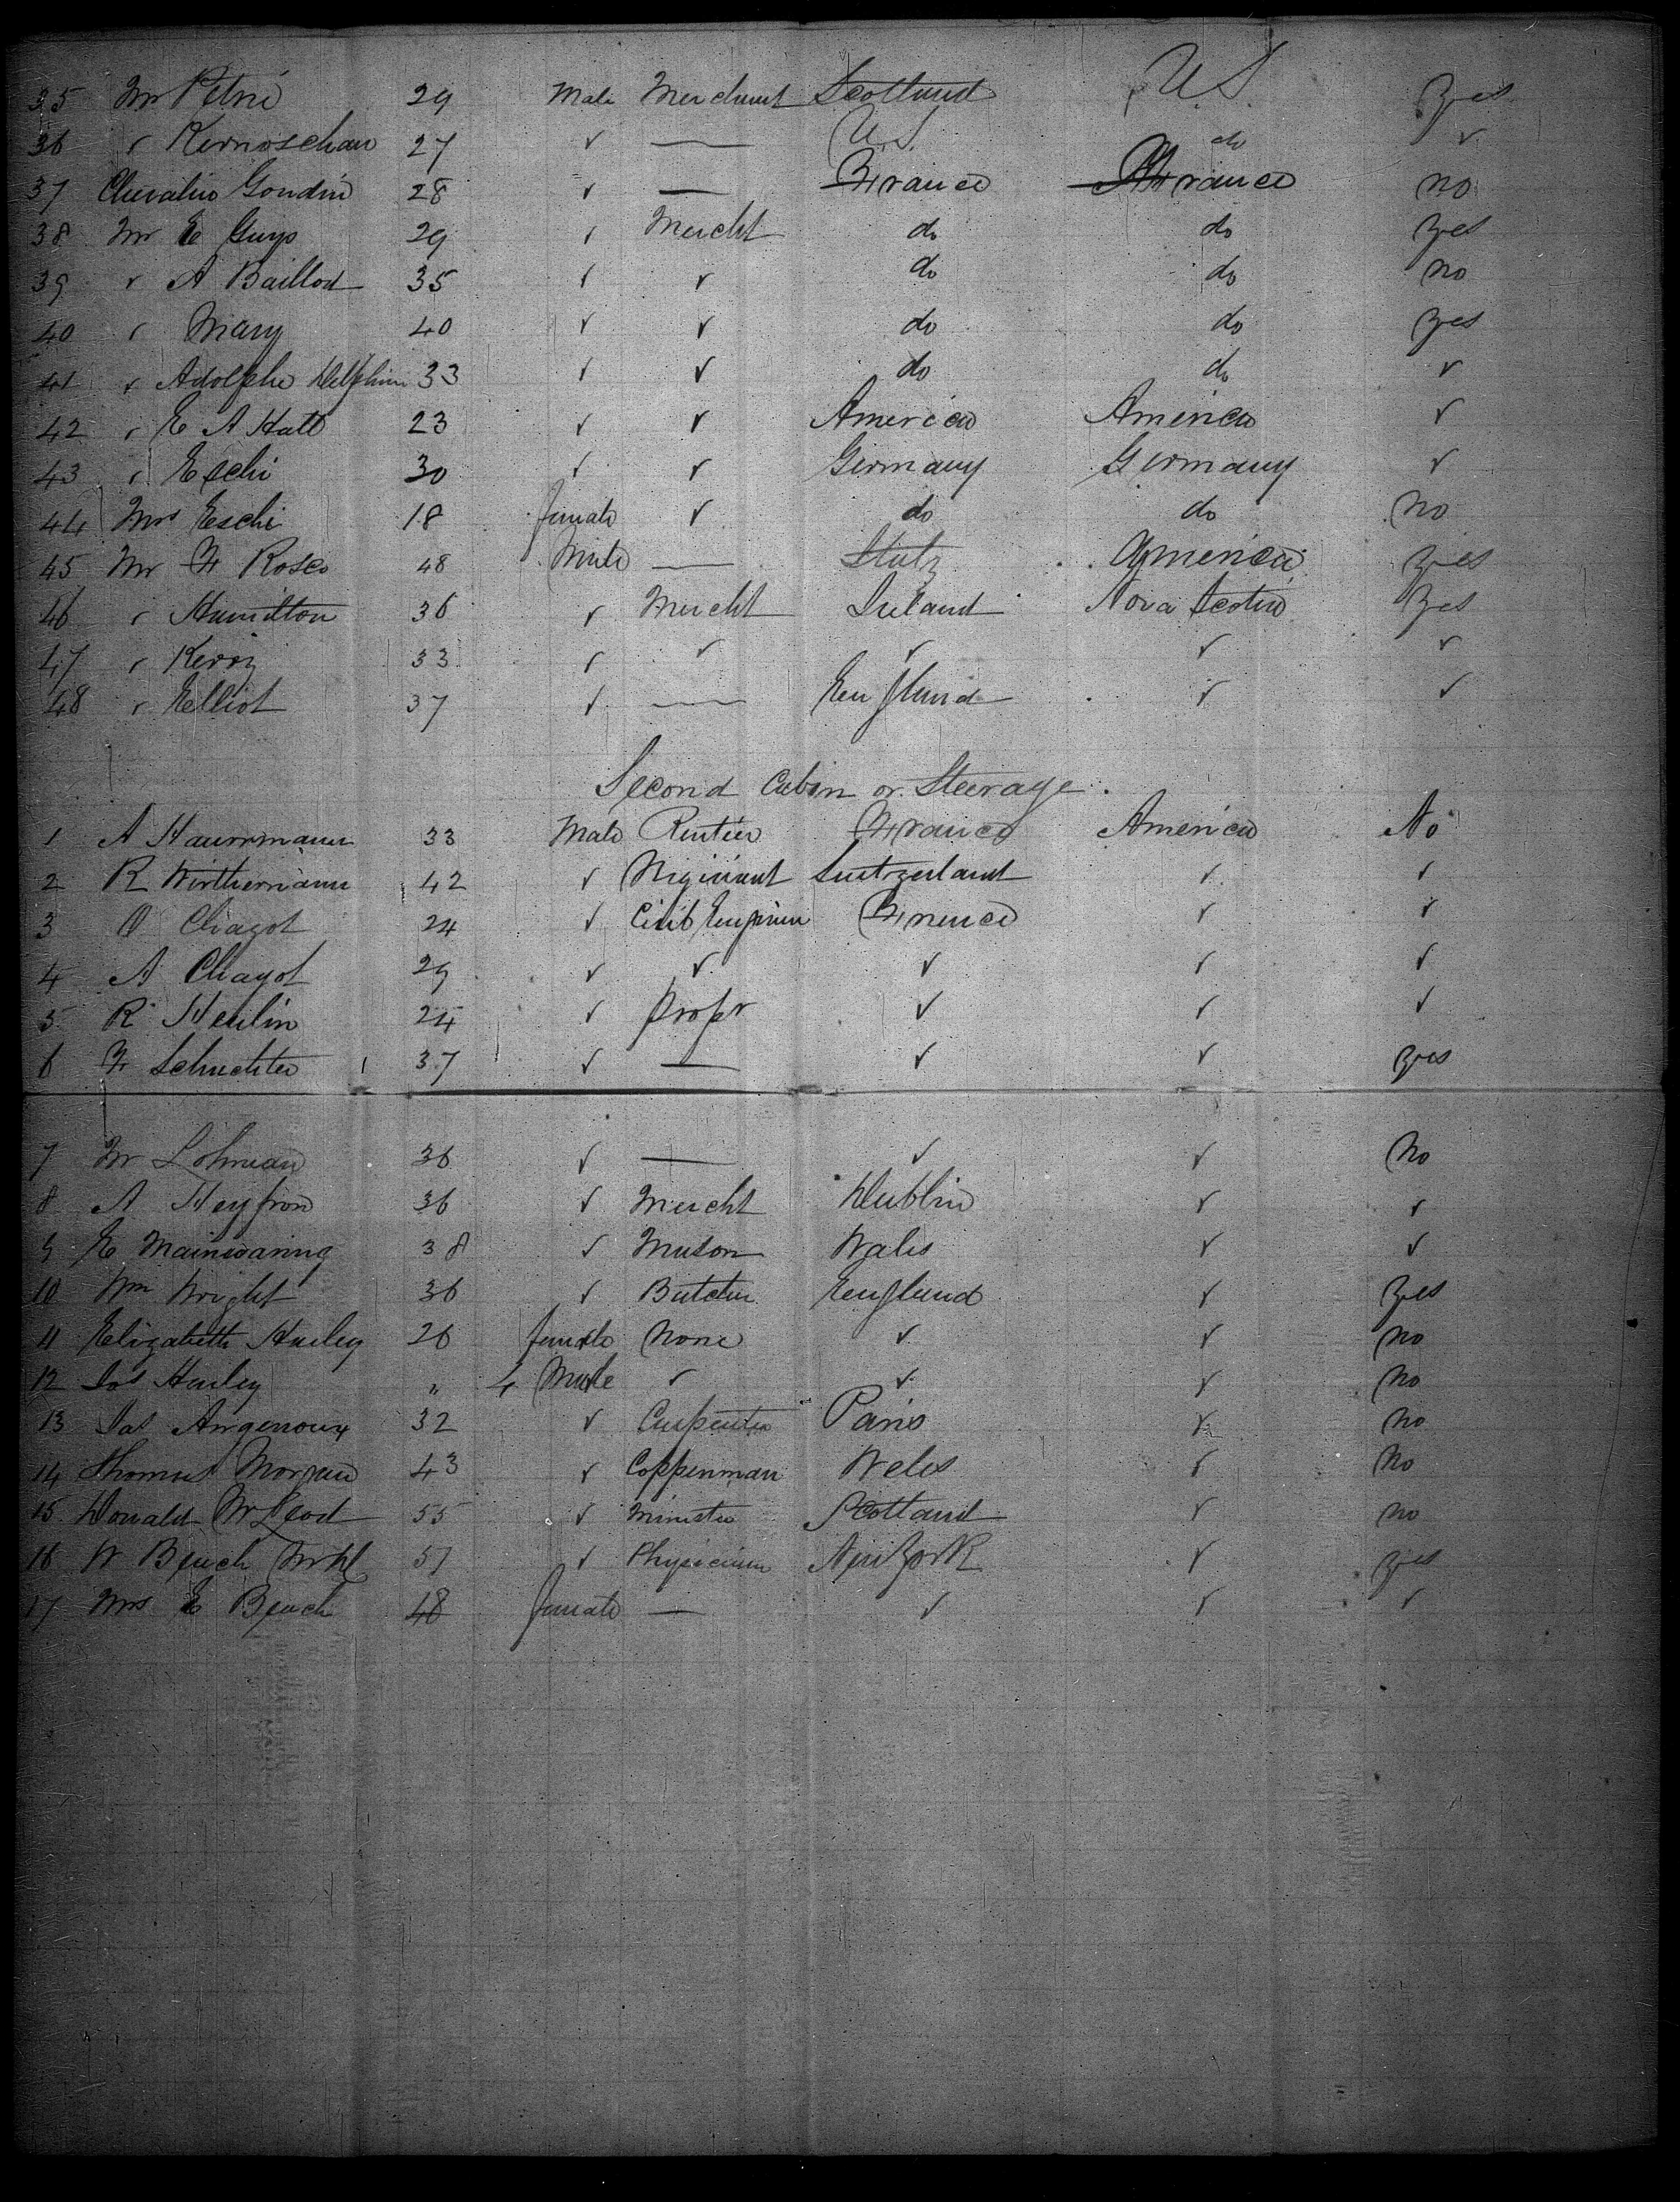 35 Mr Petrie 29 Male Merchant Scotland U.S. Yes
36 " Kernoschan 27 " — U.S. do "
37 Chevalin Gondin 28 " — France France no
38 Mr E Guys 29 " Mercht do do Yes
39 " A Baillod 35 " " do do no
40 " Mary 40 " " do do Yes
41 " Adolphe Delphin 33 " " do do "
42 " E A Hall 23 " " America America "
43 " Eschi 30 " " Germany Germany "
44 Mrs Eschi 18 female " do do no
45 Mr F Rosco 48 Male — America Yes
46 " Hamilton 36 " Mercht Ireland Nova Scotia Yes
47 " Kerry 33 " " " " "
48 " Elliot 37 " — England " "
Second Cabin or Steerage
1 A Haurrmann 33 Male Rentier France America No
2 R Wirthermann 42 " Switzerland " "
3 Chagot 24 " Civil Enginier France " "
4 A Chagot 29 " " " " "
5 R Heulin 24 " Profr " " "
6 F Schuchter 37 " — " " Yes
7 Mr Lohman 36 " — " " No
8 A Heyfron 36 " Mercht Dublin " "
9 E Mainwaring 38 " Mason Wales " "
10 Wm Wright 36 " Butcher England " Yes
11 Elizabeth Hurley 26 female None " " no
12 Jos Hurley " 4 Male " " " no
13 Jas Angenoux 32 " Carpenter Paris " no
14 Thomas Morgan 43 " Copperman Wales " no
15 Donald McLeod 55 " Minister Scotland " no
16 W Beach 57 " Physician New York " Yes
17 Mrs E Beach 48 female — " " "